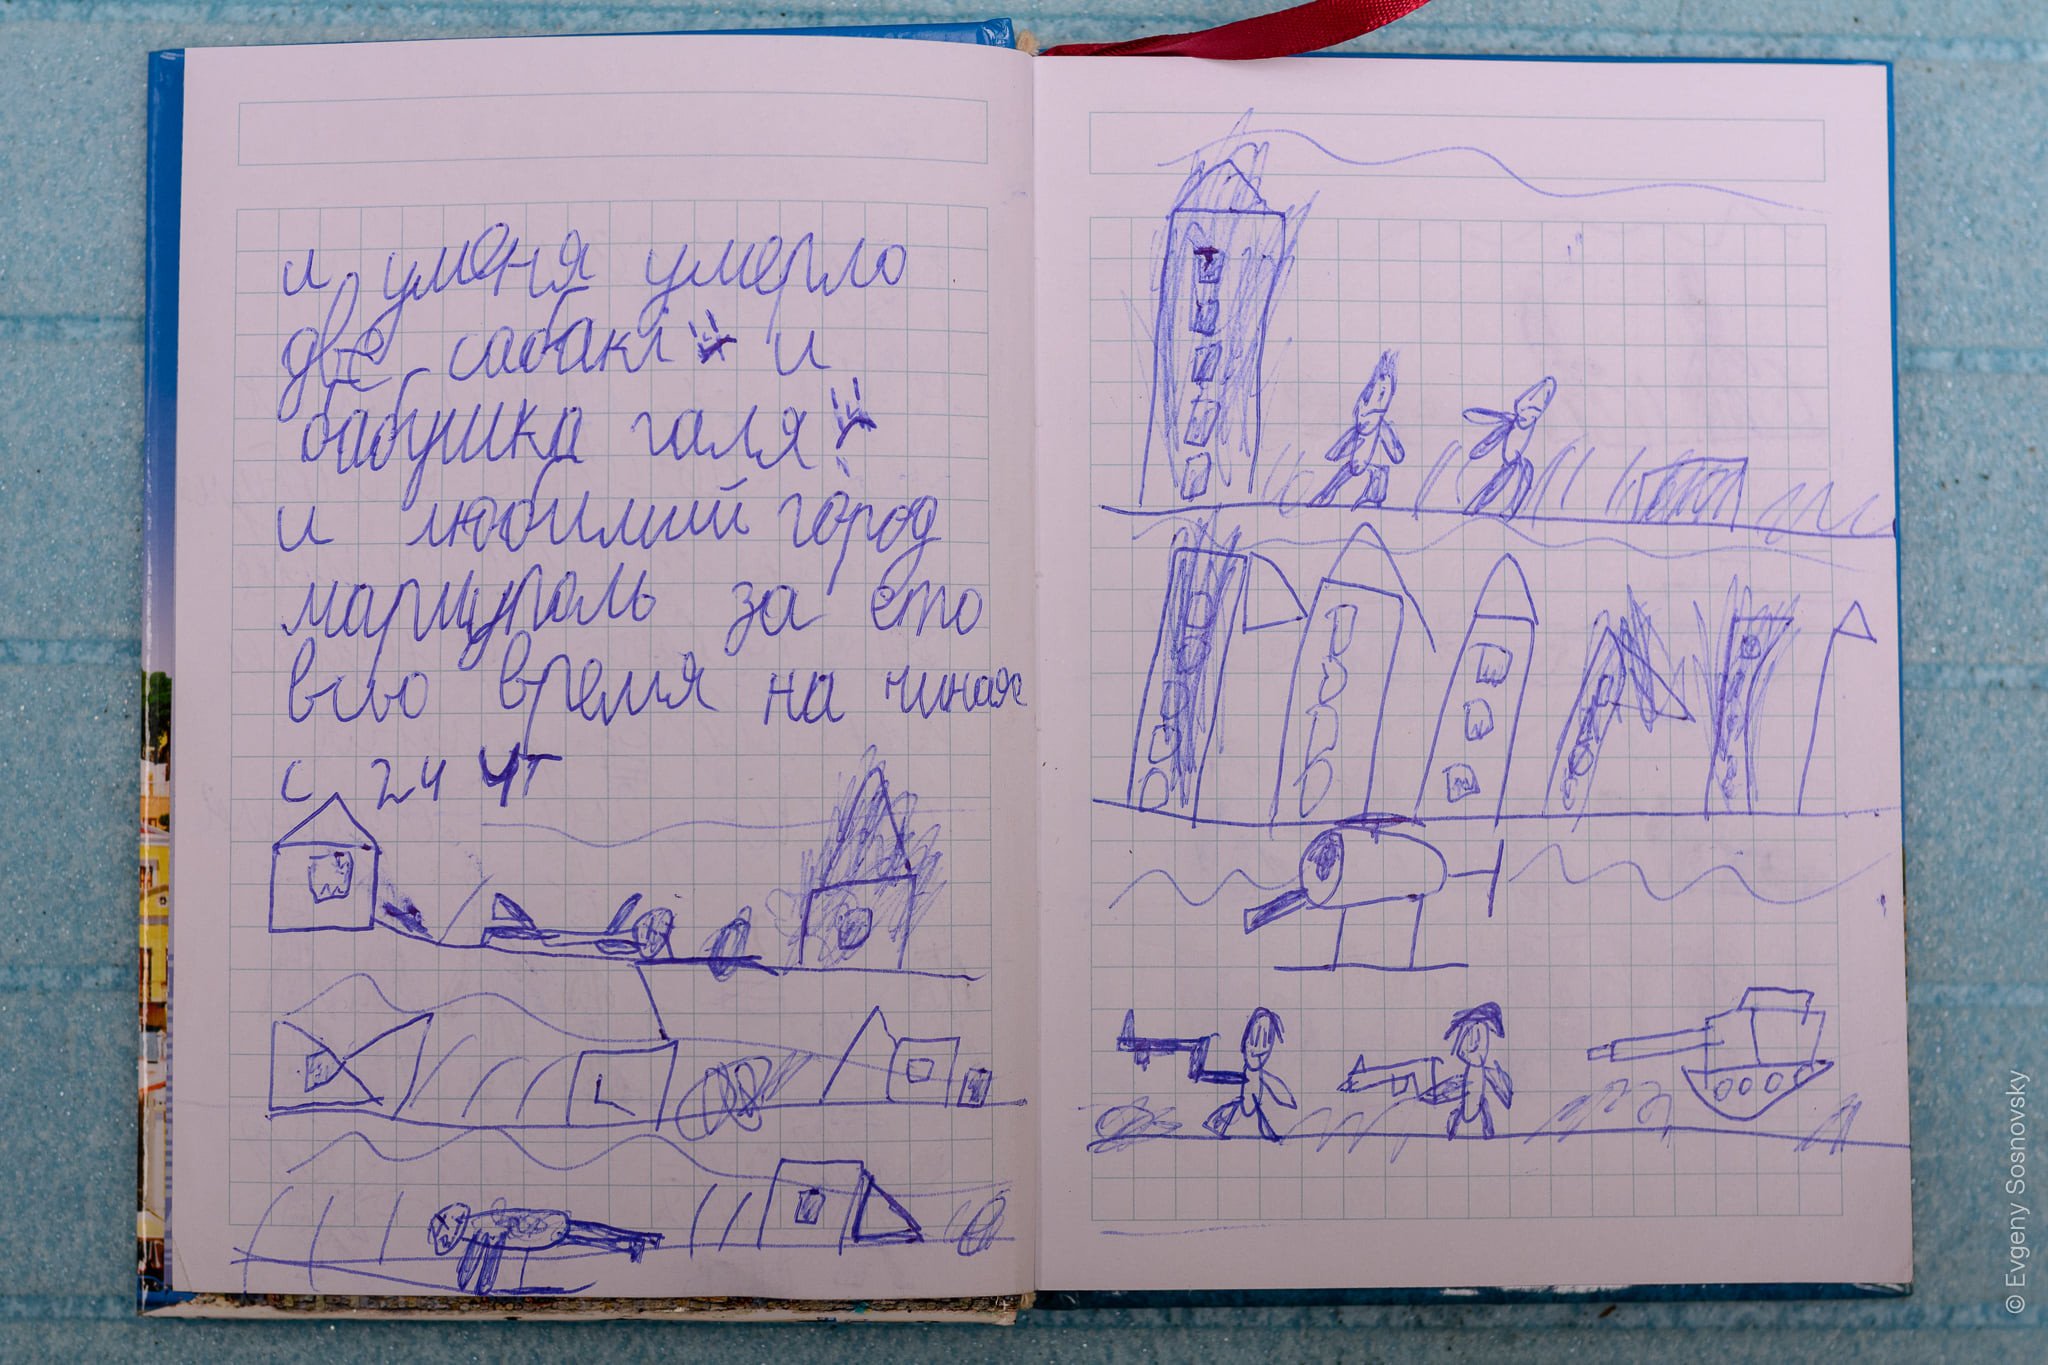 и уменя умерло
две сабакі и
бабушка галя
и любимий город
марцуполь за ето
всю время на чиная
с 24 чт
© Evgeny Sosnovsky